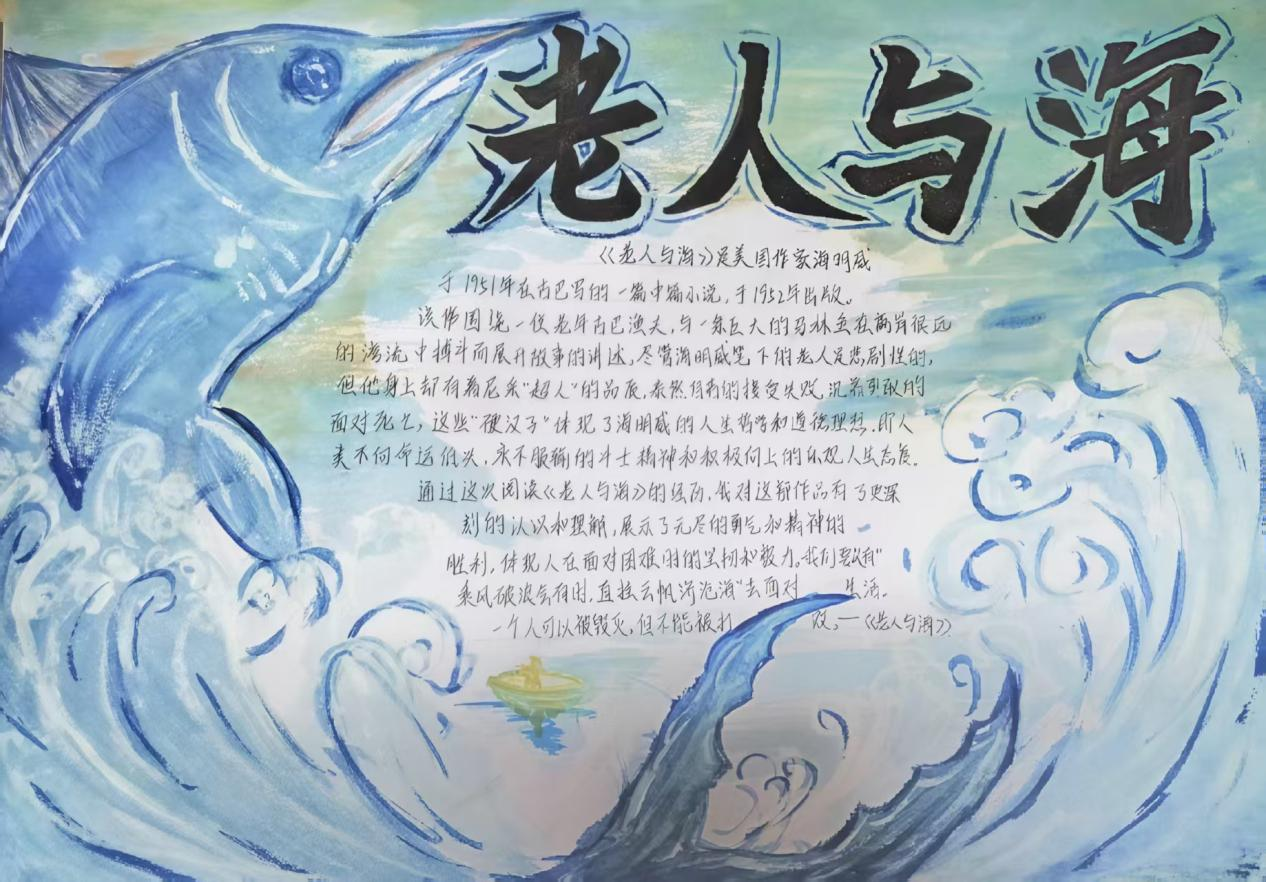 老人与海
《老人与海》是美国作家海明威
于1951年在古巴写的一篇中篇小说，于1952年出版。
该作围绕一位老年古巴渔夫，与一条巨大的马林鱼在离岸很远
的湾流中搏斗而展开故事的讲述，尽管海明威笔下的老人是悲剧性的，
但他身上却有着尼采"超人"的品质，泰然自若的接受失败，沉着勇敢的
面对死亡，这些"硬汉子"体现了海明威的人生哲学和道德理想，即人
类不向命运低头，永不服输的斗士精神和积极向上的乐观人生态度。
通过这次阅读《老人与海》的经历，我对这部作品有了更深
刻的认识和理解，展示了无尽的勇气和精神的
胜利，体现人在面对困难时的坚韧和毅力。我们要以有"
乘风破浪会有时，直挂云帆济沧海"去面对 生活。
一个人可以被毁灭，但不能被打 败，—《老人与海》